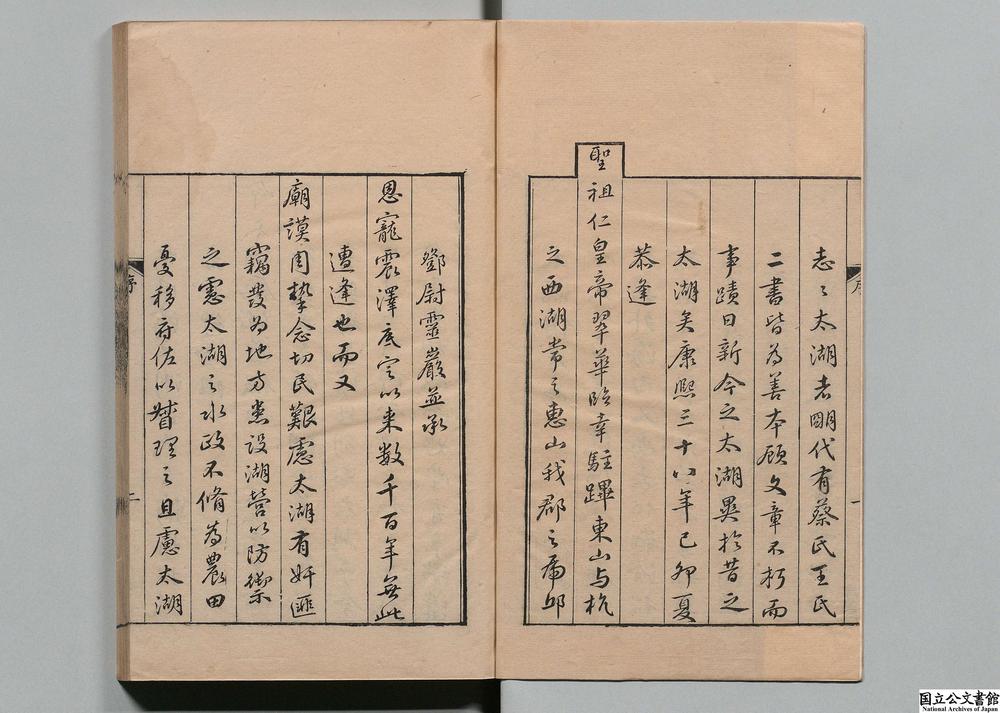 序
一
志之太湖者明代有蔡氏王氏
二書皆為善本顧文章不朽而
事蹟日新今之太湖異於昔之
太湖矣康熙三十八年己卯夏
恭逢
聖祖仁皇帝翠華臨幸駐蹕東山与杭
之西湖常之惠山我郡之虎邱
鄧尉靈巖並承
恩寵震澤底定以来数千百年無此
遭逢也而又
廟謨周摯念切民艱慮太湖有奸匪
竊發為地方患設湖營以防禦
之慮太湖之水政不脩為農田
憂移府佐以督理之且慮太湖
序
二
国立公文書館
National Archives of Japan